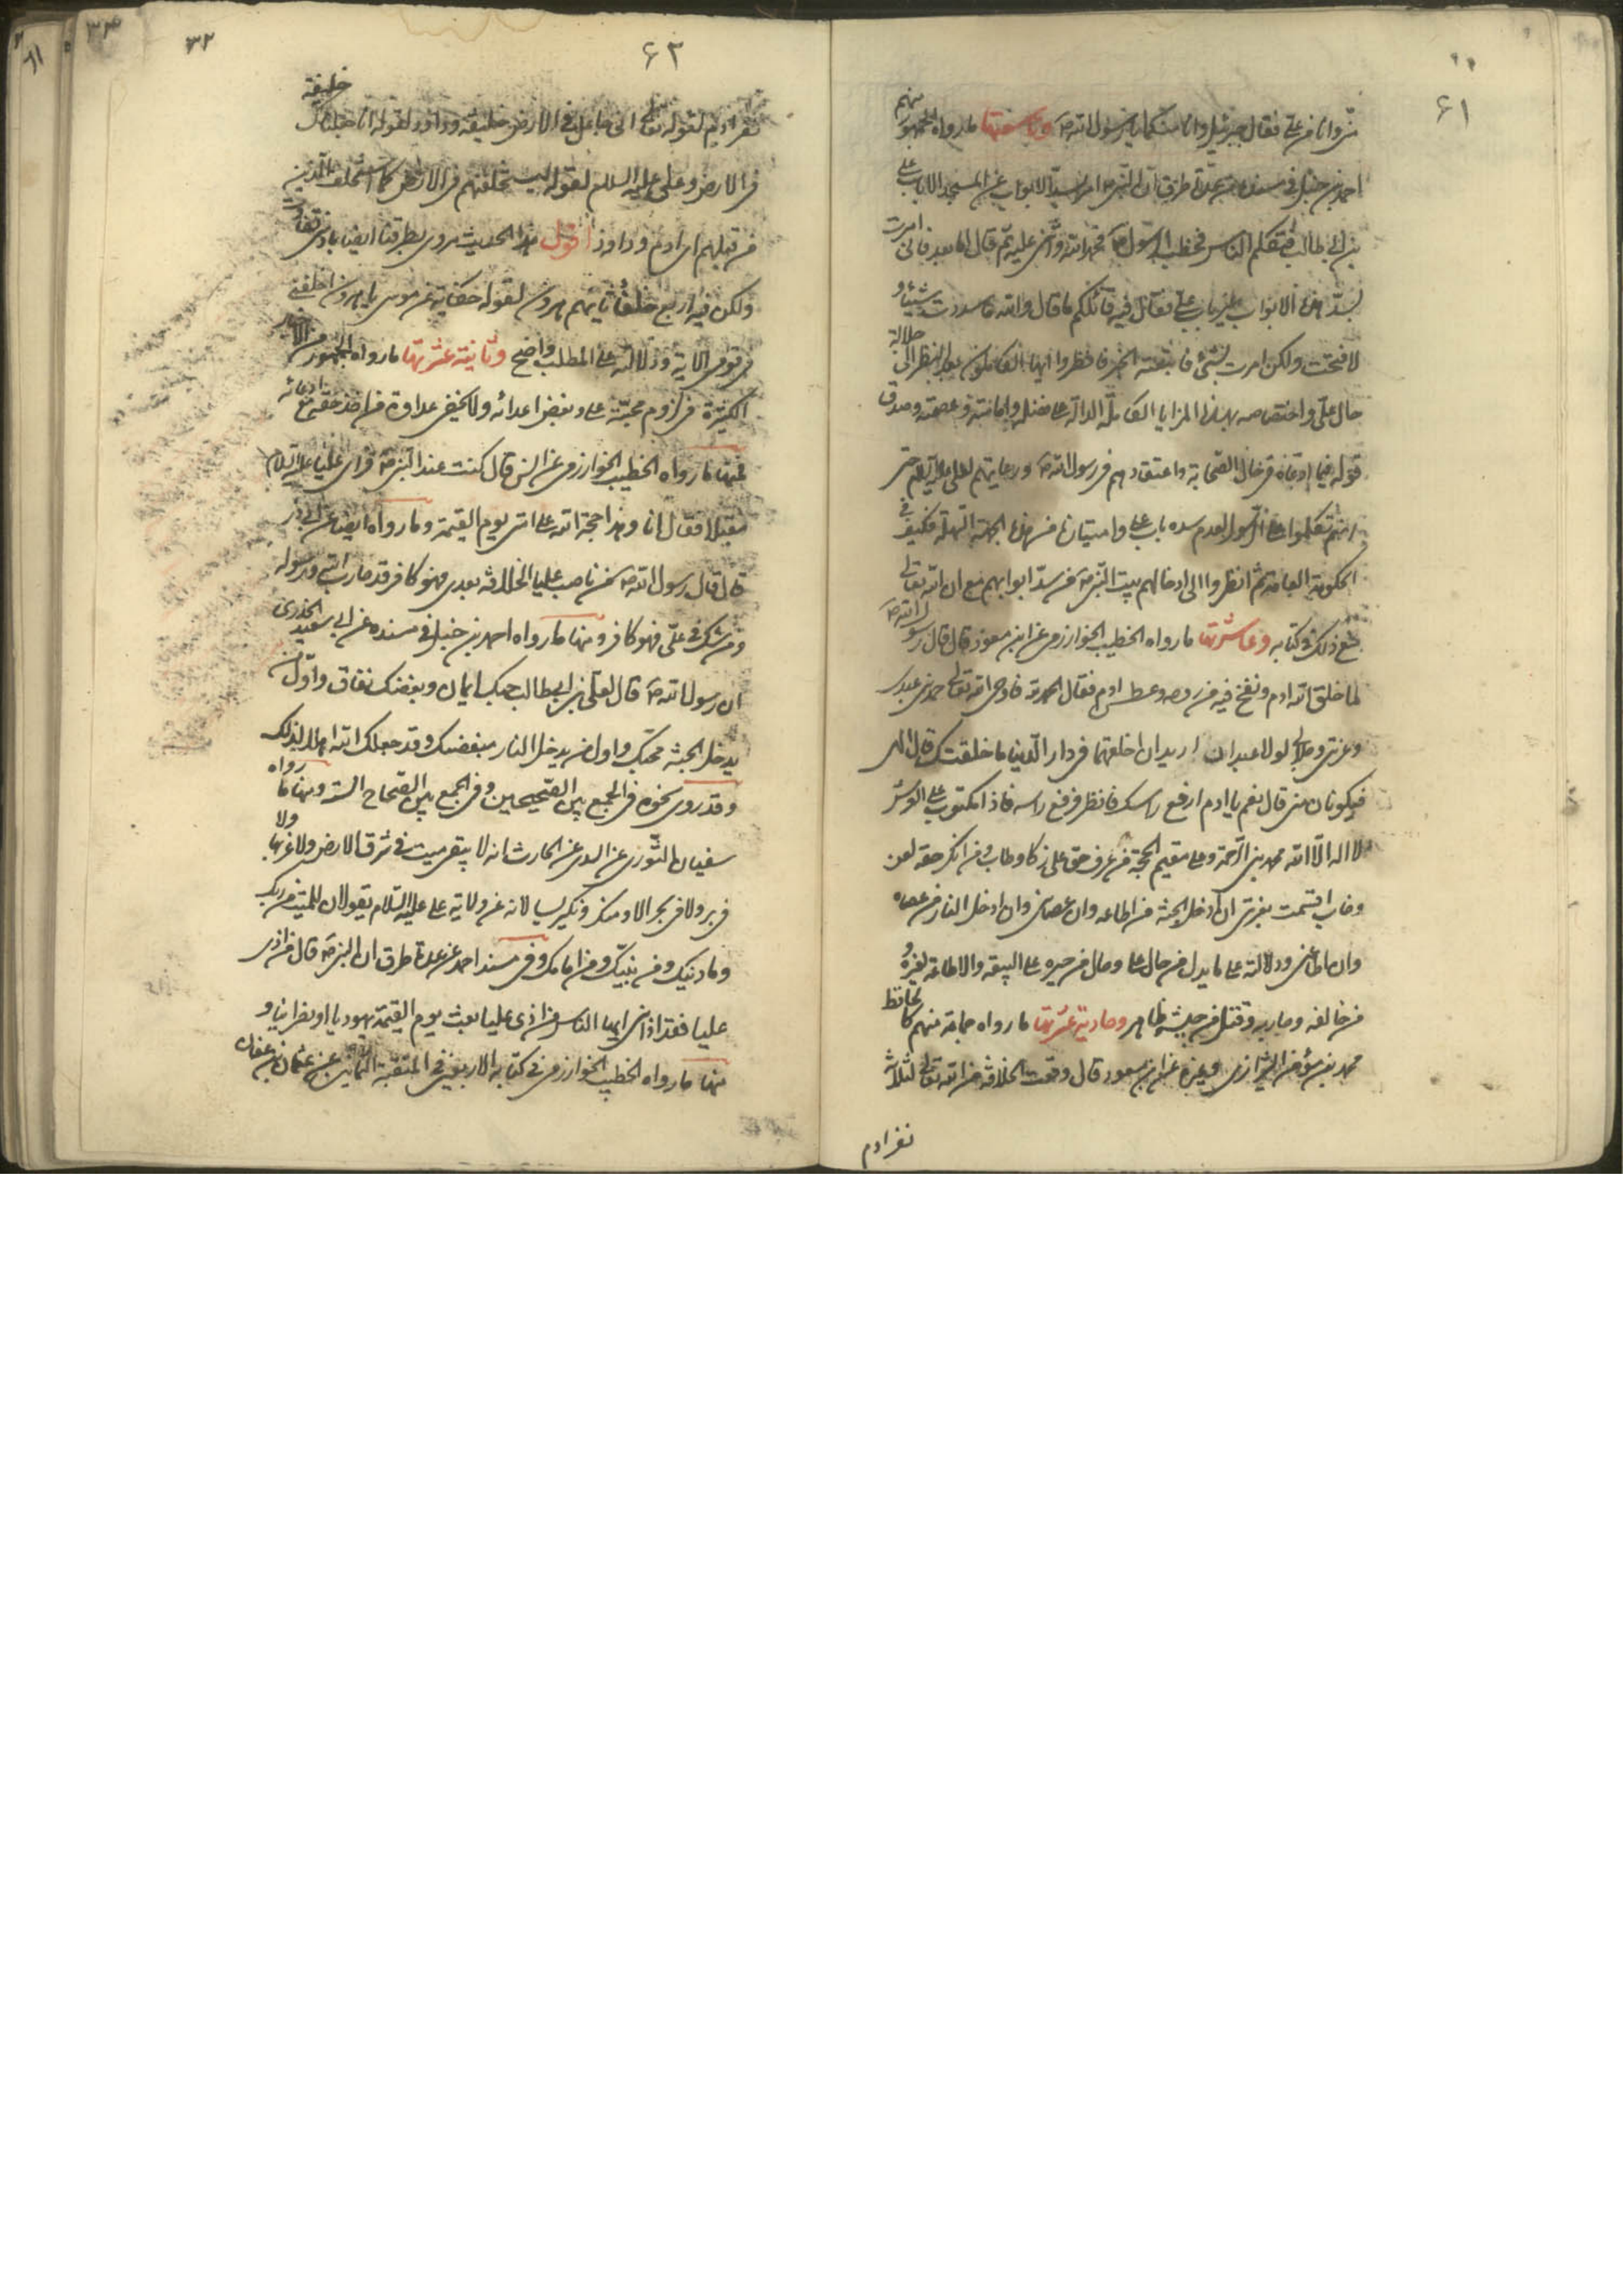 ۶۱
منی وانا من علی فقال جبرئیل وانا منکما یا رسول الله ص وتاسعتها ما رواه الجمهور منهم
احمد بن حنبل فی مسنده من عدة طرق ان النبی ص امر بسد الابواب عن المسجد الا باب علی
بن ابی طالب فتکلم الناس فخطب الرسول ص فحمد الله واثنی علیه ثم قال اما بعد فانی امرت
بسد هذه الابواب غیر باب علی فقال فیه قائلکم ما قال والله ما سددت شیئا و
لا فتحت ولکن امرت بشیء فاتبعته الخبر فانظروا ایها العاقلون بعد النظر الی جلالة
حال علی واختصاصه بهذه المزایا الکاملة الدالة علی فضله وامانته وعصمته وصدق
قوله فیما ادعاه فی حال الصحابة واعتقادهم فی رسول الله ص ورعایتهم لعلی علیه السلام حتی
انهم تکلموا علی الرسول لعدم سده باب علی وامتیازه من هذه الجهة السهلة فکیف فی
الحکومة العامة ثم انظروا الی ادخالهم بیت النبی ص من سد ابوابهم مع ان الله تعالی
منع ذلک فی کتابه وعاشرتها ما رواه الخطیب الخوارزمی عن ابن مسعود قال قال رسول الله ص
لما خلق الله ادم ونفخ فیه من روحه وعطس ادم فقال الحمد لله فاوحی الله تعالی حمدنی عبدی
وعزتی وجلالی لولا عبدان ارید ان اخلقهما فی دار الدنیا ما خلقتک قال الهی
فیکونان منی قال نعم یا ادم ارفع راسک فانظر فرفع راسه فاذا مکتوب علی العرش
لا اله الا الله محمد نبی الرحمة وعلی مقیم الحجة من عرف حق علی زکا وطاب ومن انکر حقه لعن
وخاب اقسمت بعزتی ان ادخل الجنة من اطاعه وان عصانی وان ادخل النار من عصاه
وان اطاعنی ودلالته علی ما یدل من حال علی وحال من جبره علی البیعة والاطاعة لغیره و
من خالفه وحاربه وقتل من جیشه ظاهر وحادیة عشرتها ما رواه جماعة منهم کالحافظ
محمد بن مؤمن الشیرازی وغیره عن ابن مسعود قال وقعت الخلافة من الله تعالی لثلاثة
نفر ادم
۶۲
۳۲
نفر ادم لقوله تعالی انی جاعل فی الارض خلیفة وداود لقوله انا جعلناک خلیفة
فی الارض وعلی علیه السلام لقوله لیستخلفنهم فی الارض کما استخلف الذین
من قبلهم ای ادم وداود اقول هذا الحدیث مروی بطرقنا ایضا بادنی تفاوت
ولکن فیه اربع خلفا ثانیهم هرون لقوله حکایة عن موسی یا هرون اخلفنی
فی قومی الایة ودلالته علی المطلب واضح وثانیة عشرتها ما رواه الجمهور من الاخبار
الکثیرة فی لزوم محبة علی وبغض اعدائه ولا یخفی عداوة من اخذ حقه مع ادعائه
فمنها ما رواه الخطیب الخوارزمی عن انس قال کنت عند النبی ص فرای علیا علیه السلام
مقبلا فقال انا وهذا حجة الله علی امتی یوم القیمة وما رواه ایضا عن ابی ذر
قال قال رسول الله ص من ناصب علیا الخلافة بعدی فهو کافر قد حارب الله ورسوله
ومن شک فی علی فهو کافر ومنها ما رواه احمد بن حنبل فی مسنده عن ابی سعید الخدری
ان رسول الله ص قال لعلی بن ابی طالب حبک ایمان وبغضک نفاق واول من
یدخل الجنة محبک واول من یدخل النار مبغضک وقد جعلک الله اهلا لذلک
وقد روی نحوه فی الجمع بین الصحیحین وفی الجمع بین الصحاح الستة ومنها ما رواه
سفیان الثوری عن السدی عن الحارث انه لا یبقی میت فی شرق الارض ولا غربها ولا
فی بر ولا فی بحر الا ومنکر ونکیر یسالانه عن ولایة علی علیه السلام یقولان للمیت من ربک
وما دینک ومن نبیک ومن امامک وفی مسند احمد عن عدة طرق ان النبی ص قال من اذی
علیا فقد اذانی ایها الناس من اذی علیا بعث یوم القیمة یهودیا او نصرانیا و
منها ما رواه الخطیب الخوارزمی فی کتابه الاربعین فی المنقبة الثمانین عن عثمان بن عفان